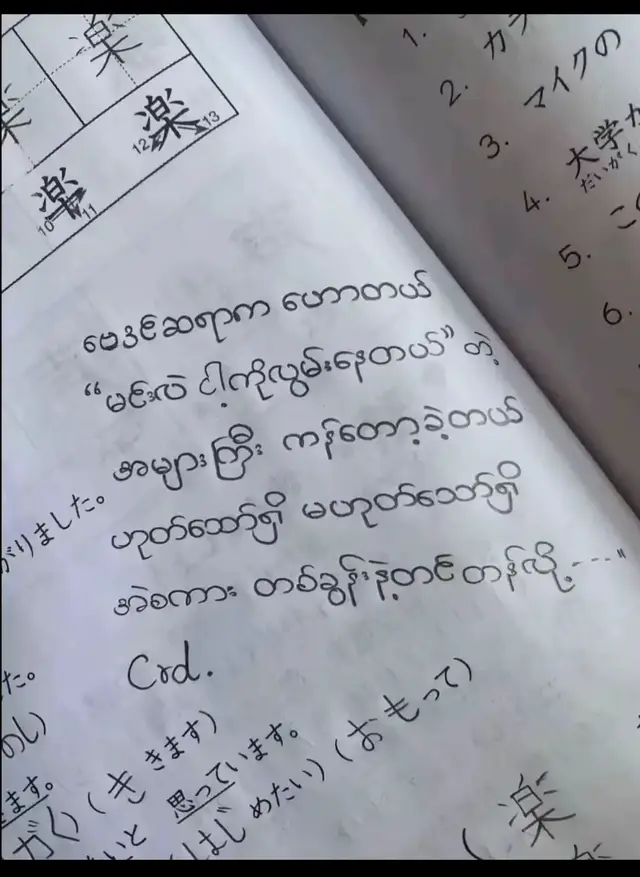 楽
楽
12 13
楽
10 11
1.
2. カラ
3. マイクの
4. 大学
だいがく
5. この
6.
ဗေဒင်ဆရာက ဟောတယ်
“မင်းလဲ ငါ့ကိုလွမ်းနေတယ်” တဲ့
အများကြီး ကန်တော့ခဲ့တယ်
ဟုတ်သော်ရှိ မဟုတ်သော်ရှိ
အဲစကား တစ်ခွန်းနဲ့တင် တန်လို့----"
Crd.
がりました。
た。
のし)
きます。
がく(きききます)
いと 思っています。
はじめたい)(おもって)
(楽
が